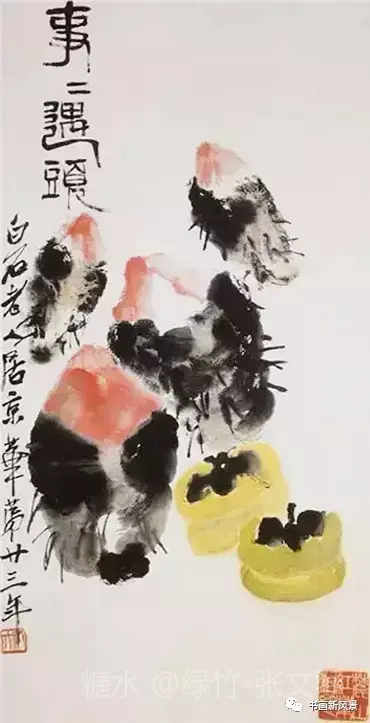 事二遇頭
白石老人居京華第廿三年
糖水 @绿竹-张文
书画新风景